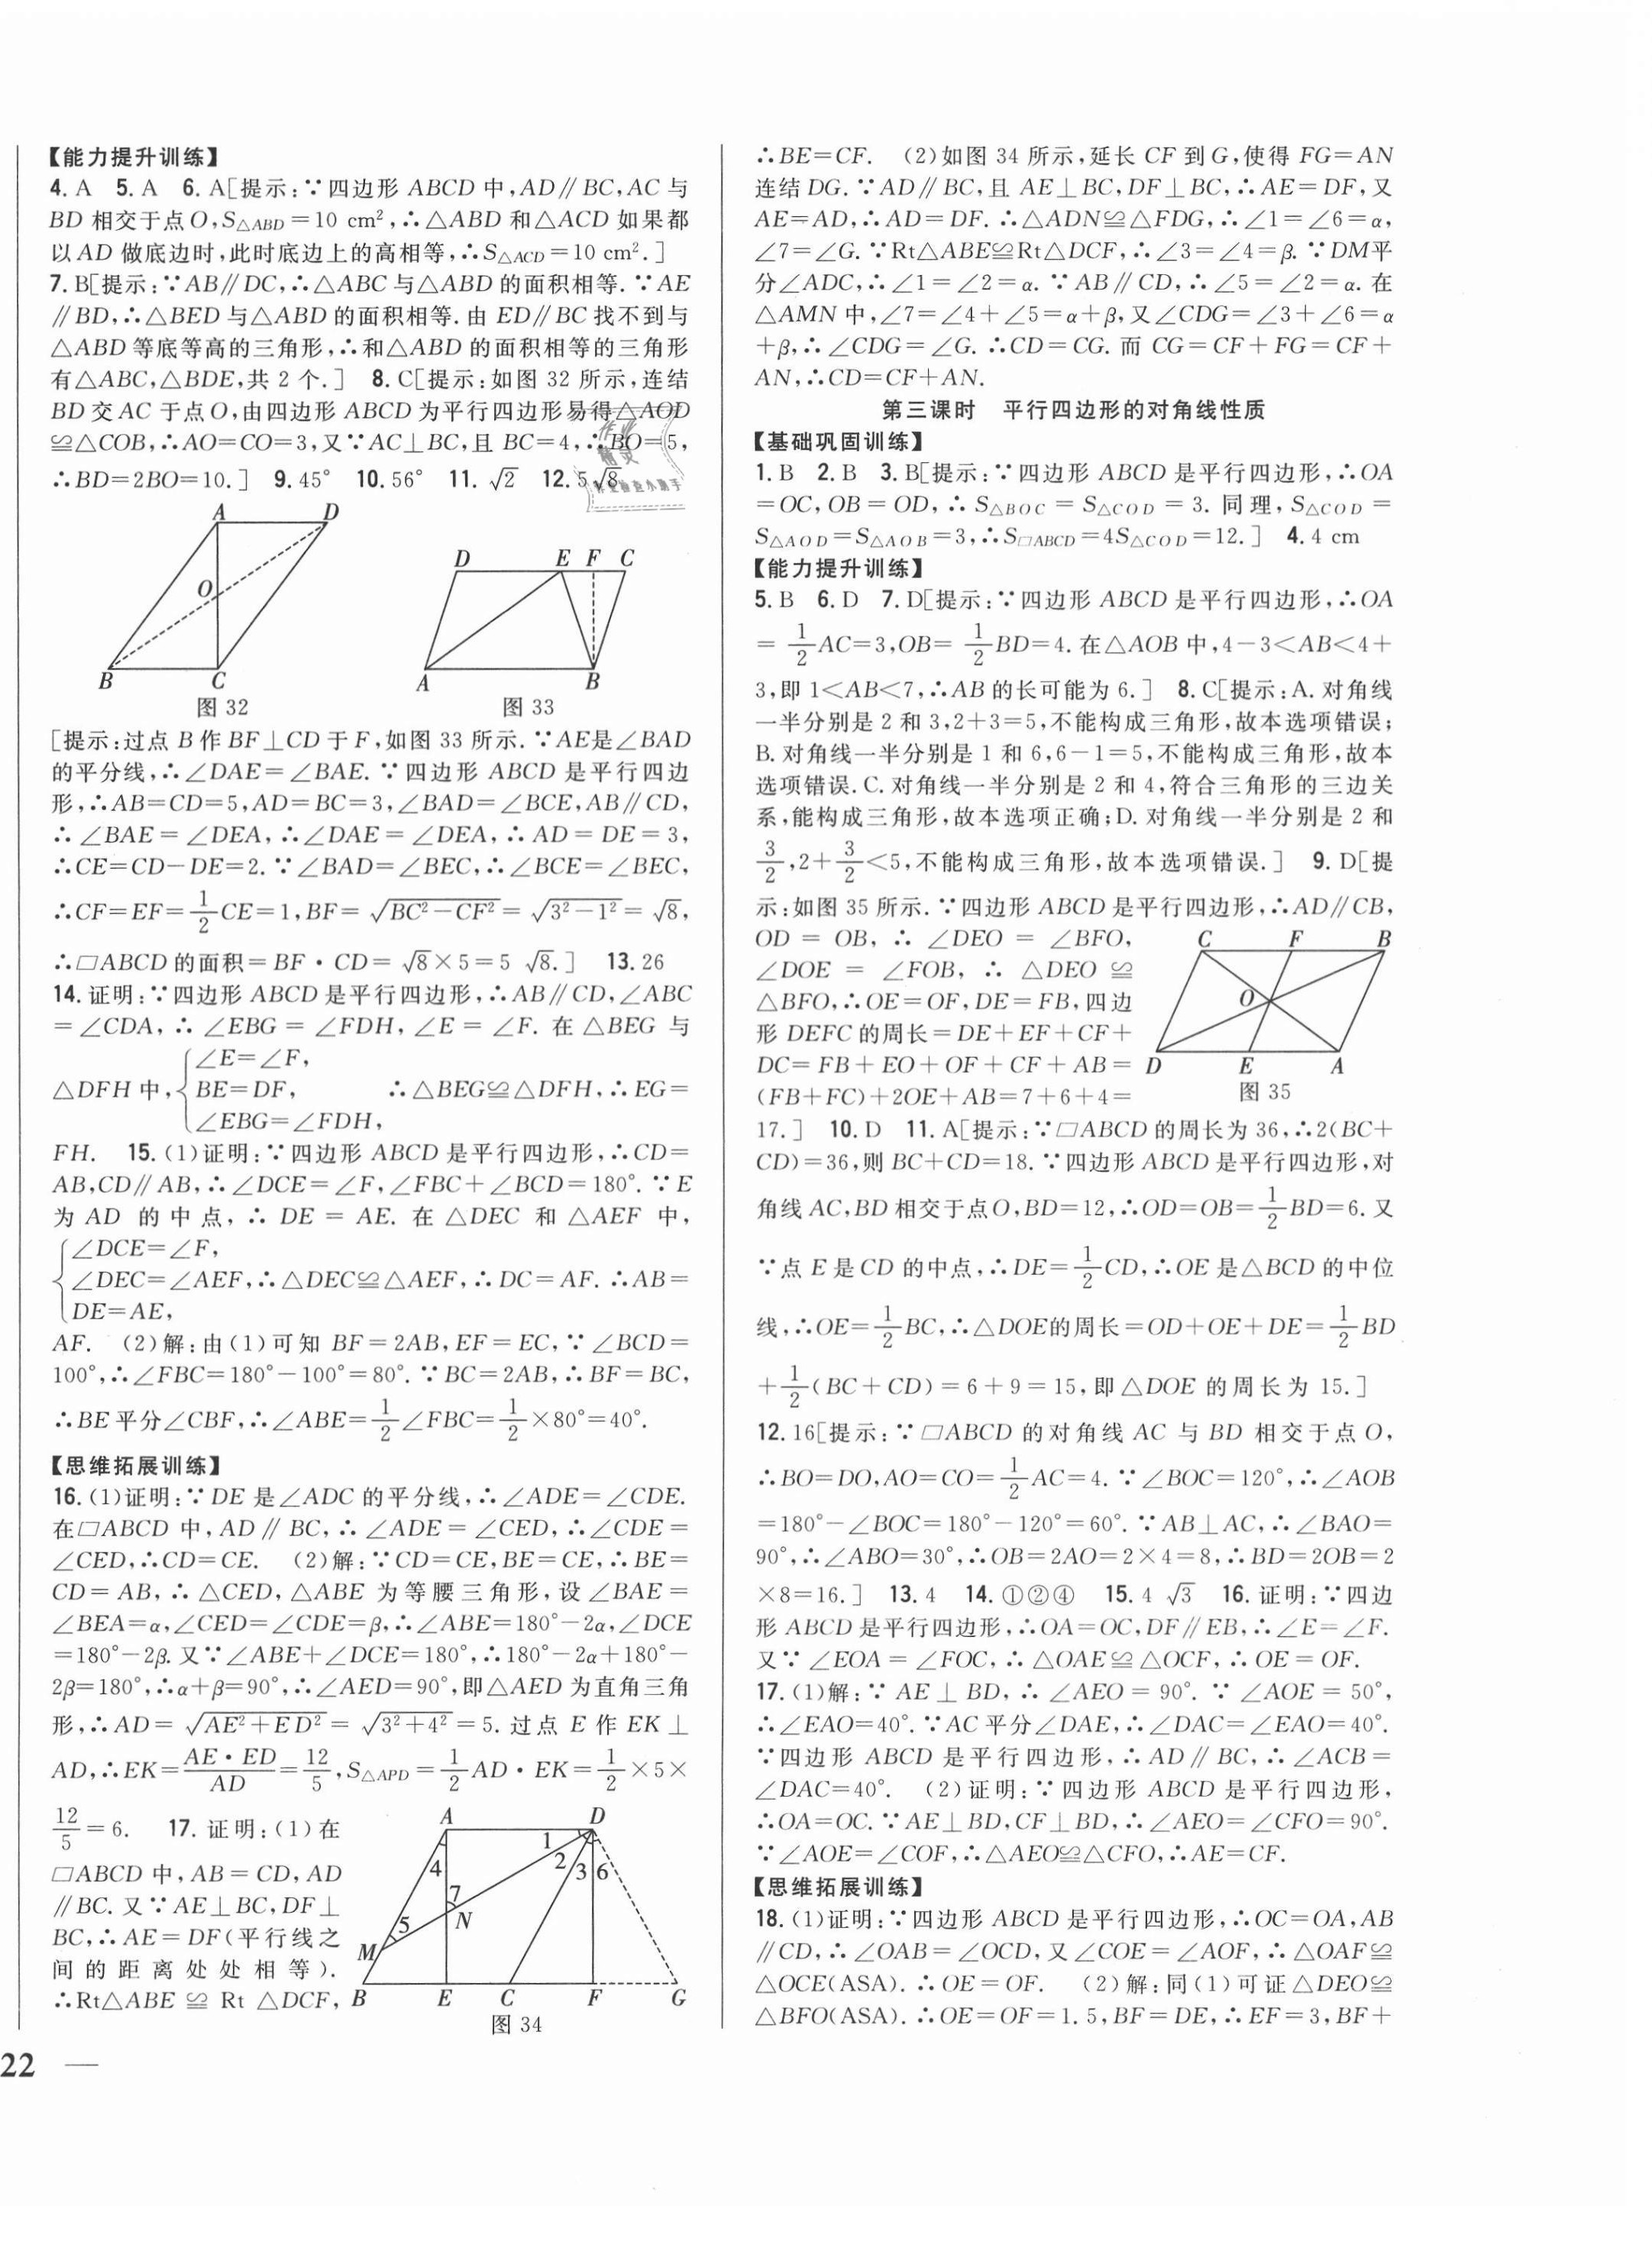 【能力提升训练】
4. A　5. A　6. A[提示:∵四边形 ABCD 中,AD∥BC,AC 与
BD 相交于点O,S△ABD=10 cm²,∴△ABD 和△ACD 如果都
以 AD 做底边时,此时底边上的高相等,∴S△ACD=10 cm².]
7. B[提示:∵AB∥DC,∴△ABC 与△ABD 的面积相等.∵AE
∥BD,∴△BED 与△ABD 的面积相等.由 ED∥BC 找不到与
△ABD 等底等高的三角形,∴和△ABD 的面积相等的三角形
有△ABC,△BDE,共 2 个.]　8. C[提示:如图 32 所示,连结
BD 交 AC 于点 O,由四边形 ABCD 为平行四边形易得△AOD
≌△COB,∴AO=CO=3,又∵AC⊥BC,且 BC=4,∴BO=5,
∴BD=2BO=10.]　9. 45°　10. 56°　11. √2　12. 5√8
A　D
O
B　C
图 32
D　E　F　C
A　B
图 33
[提示:过点 B 作 BF⊥CD 于 F,如图 33 所示.∵AE是∠BAD
的平分线,∴∠DAE=∠BAE.∵四边形 ABCD 是平行四边
形,∴AB=CD=5,AD=BC=3,∠BAD=∠BCE,AB∥CD,
∴∠BAE=∠DEA,∴∠DAE=∠DEA,∴AD=DE=3,
∴CE=CD−DE=2.∵∠BAD=∠BEC,∴∠BCE=∠BEC,
∴CF=EF=1/2CE=1,BF=√(BC²−CF²)=√(3²−1²)=√8,
∴▱ABCD 的面积=BF·CD=√8×5=5√8.]　13. 26
14. 证明:∵四边形 ABCD 是平行四边形,∴AB∥CD,∠ABC
=∠CDA,∴∠EBG=∠FDH,∠E=∠F.在△BEG 与
∠E=∠F,
△DFH 中,{BE=DF,　∴△BEG≌△DFH,∴EG=
∠EBG=∠FDH,
FH.　15. (1)证明:∵四边形 ABCD 是平行四边形,∴CD=
AB,CD∥AB,∴∠DCE=∠F,∠FBC+∠BCD=180°.∵E
为 AD 的中点,∴DE=AE.在△DEC 和△AEF 中,
∠DCE=∠F,
{∠DEC=∠AEF,∴△DEC≌△AEF,∴DC=AF.∴AB=
DE=AE,
AF.　(2)解:由(1)可知 BF=2AB,EF=EC,∵∠BCD=
100°,∴∠FBC=180°−100°=80°.∵BC=2AB,∴BF=BC,
∴BE 平分∠CBF,∴∠ABE=1/2∠FBC=1/2×80°=40°.
【思维拓展训练】
16. (1)证明:∵DE 是∠ADC 的平分线,∴∠ADE=∠CDE.
在▱ABCD 中,AD∥BC,∴∠ADE=∠CED,∴∠CDE=
∠CED,∴CD=CE.　(2)解:∵CD=CE,BE=CE,∴BE=
CD=AB,∴△CED,△ABE 为等腰三角形,设∠BAE=
∠BEA=α,∠CED=∠CDE=β,∴∠ABE=180°−2α,∠DCE
=180°−2β.又∵∠ABE+∠DCE=180°,∴180°−2α+180°−
2β=180°,∴α+β=90°,∴∠AED=90°,即△AED 为直角三角
形,∴AD=√(AE²+ED²)=√(3²+4²)=5.过点 E 作 EK⊥
AD,∴EK=AE·ED/AD=12/5,S△APD=1/2AD·EK=1/2×5×
12/5=6.　17. 证明:(1)在
▱ABCD 中,AB=CD,AD
∥BC.又∵AE⊥BC,DF⊥
BC,∴AE=DF(平行线之
间的距离处处相等).
∴Rt△ABE≌Rt△DCF,
A　D
1
4　2　3　6
7
5　N
M
B　E　C　F　G
图 34
22 —
∴BE=CF.　(2)如图 34 所示,延长 CF 到 G,使得 FG=AN
连结 DG.∵AD∥BC,且 AE⊥BC,DF⊥BC,∴AE=DF,又
AE=AD,∴AD=DF.∴△ADN≌△FDG,∴∠1=∠6=α,
∠7=∠G.∵Rt△ABE≌Rt△DCF,∴∠3=∠4=β.∵DM平
分∠ADC,∴∠1=∠2=α.∵AB∥CD,∴∠5=∠2=α.在
△AMN 中,∠7=∠4+∠5=α+β,又∠CDG=∠3+∠6=α
+β,∴∠CDG=∠G.∴CD=CG.而 CG=CF+FG=CF+
AN,∴CD=CF+AN.
第三课时　平行四边形的对角线性质
【基础巩固训练】
1. B　2. B　3. B[提示:∵四边形 ABCD 是平行四边形,∴OA
=OC,OB=OD,∴S△BOC=S△COD=3.同理,S△COD=
S△AOD=S△AOB=3,∴S▱ABCD=4S△COD=12.]　4. 4 cm
【能力提升训练】
5. B　6. D　7. D[提示:∵四边形 ABCD 是平行四边形,∴OA
=1/2AC=3,OB=1/2BD=4.在△AOB 中,4−3<AB<4+
3,即 1<AB<7,∴AB 的长可能为 6.]　8. C[提示:A. 对角线
一半分别是 2 和 3,2+3=5,不能构成三角形,故本选项错误;
B. 对角线一半分别是 1 和 6,6−1=5,不能构成三角形,故本
选项错误.C. 对角线一半分别是 2 和 4,符合三角形的三边关
系,能构成三角形,故本选项正确;D. 对角线一半分别是 2 和
3/2,2+3/2<5,不能构成三角形,故本选项错误.]　9. D[提
示:如图 35 所示.∵四边形 ABCD 是平行四边形,∴AD∥CB,
OD=OB,∴∠DEO=∠BFO,
∠DOE=∠FOB,∴△DEO≌
△BFO,∴OE=OF,DE=FB,四边
形 DEFC 的周长=DE+EF+CF+
DC=FB+EO+OF+CF+AB=
(FB+FC)+2OE+AB=7+6+4=
C　F　B
O
D　E　A
图 35
17.]　10. D　11. A[提示:∵▱ABCD 的周长为 36,∴2(BC+
CD)=36,则 BC+CD=18.∵四边形 ABCD 是平行四边形,对
角线 AC,BD 相交于点O,BD=12,∴OD=OB=1/2BD=6.又
∵点 E 是 CD 的中点,∴DE=1/2CD,∴OE 是△BCD 的中位
线,∴OE=1/2BC,∴△DOE的周长=OD+OE+DE=1/2BD
+1/2(BC+CD)=6+9=15,即△DOE 的周长为 15.]
12. 16[提示:∵▱ABCD 的对角线 AC 与 BD 相交于点 O,
∴BO=DO,AO=CO=1/2AC=4.∵∠BOC=120°,∴∠AOB
=180°−∠BOC=180°−120°=60°.∵AB⊥AC,∴∠BAO=
90°,∴∠ABO=30°,∴OB=2AO=2×4=8,∴BD=2OB=2
×8=16.]　13. 4　14. ①②④　15. 4√3　16. 证明:∵四边
形 ABCD 是平行四边形,∴OA=OC,DF∥EB,∴∠E=∠F.
又∵∠EOA=∠FOC,∴△OAE≌△OCF,∴OE=OF.
17. (1)解:∵AE⊥BD,∴∠AEO=90°.∵∠AOE=50°,
∴∠EAO=40°.∵AC 平分∠DAE,∴∠DAC=∠EAO=40°.
∵四边形 ABCD 是平行四边形,∴AD∥BC,∴∠ACB=
∠DAC=40°.　(2)证明:∵四边形 ABCD 是平行四边形,
∴OA=OC.∵AE⊥BD,CF⊥BD,∴∠AEO=∠CFO=90°.
∵∠AOE=∠COF,∴△AEO≌△CFO,∴AE=CF.
【思维拓展训练】
18. (1)证明:∵四边形 ABCD 是平行四边形,∴OC=OA,AB
∥CD,∴∠OAB=∠OCD,又∠COE=∠AOF,∴△OAF≌
△OCE(ASA).∴OE=OF.　(2)解:同(1)可证△DEO≌
△BFO(ASA).∴OE=OF=1.5,BF=DE,∴EF=3,BF+